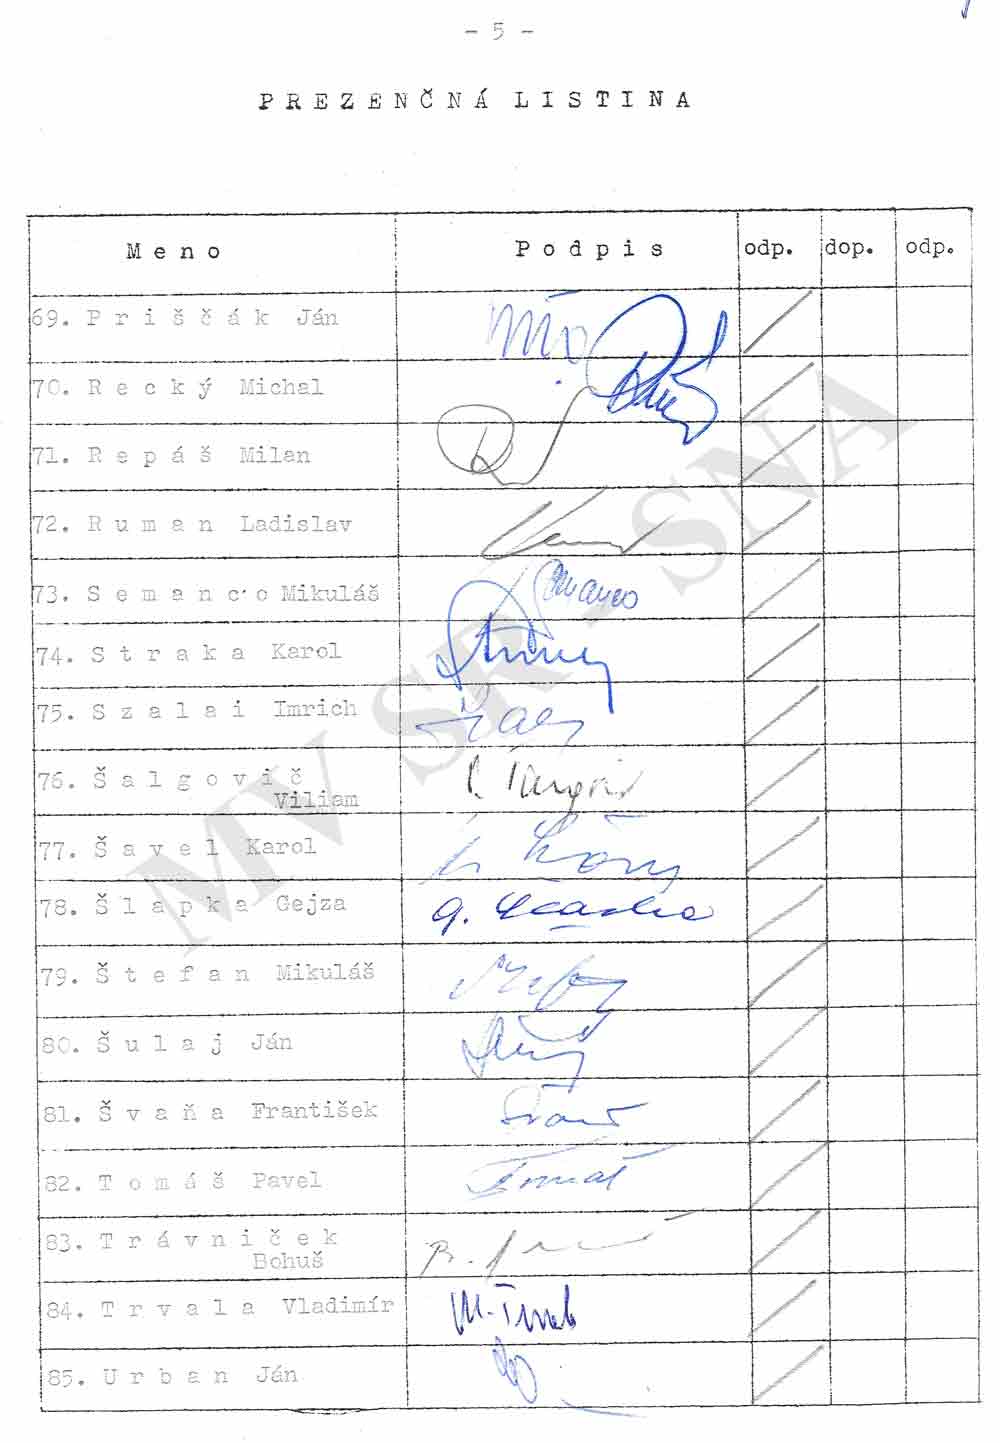 - 5 -
PREZENČNÁ LISTINA
Meno Podpis odp. dop. odp.
69. Priščák Ján
70. Recký Michal
71. Repáš Milan
72. Ruman Ladislav
73. Semanco Mikuláš
74. Straka Karol
75. Szalai Imrich
76. Šalgovič
Viliam
77. Šavel Karol
78. Šlapka Gejza
79. Štefan Mikuláš
80. Šulaj Ján
81. Švaňa František
82. Tomáš Pavel
Tomáš
83. Trávniček
Bohuš
84. Trvala Vladimír
85. Urban Ján
MV SR SNA